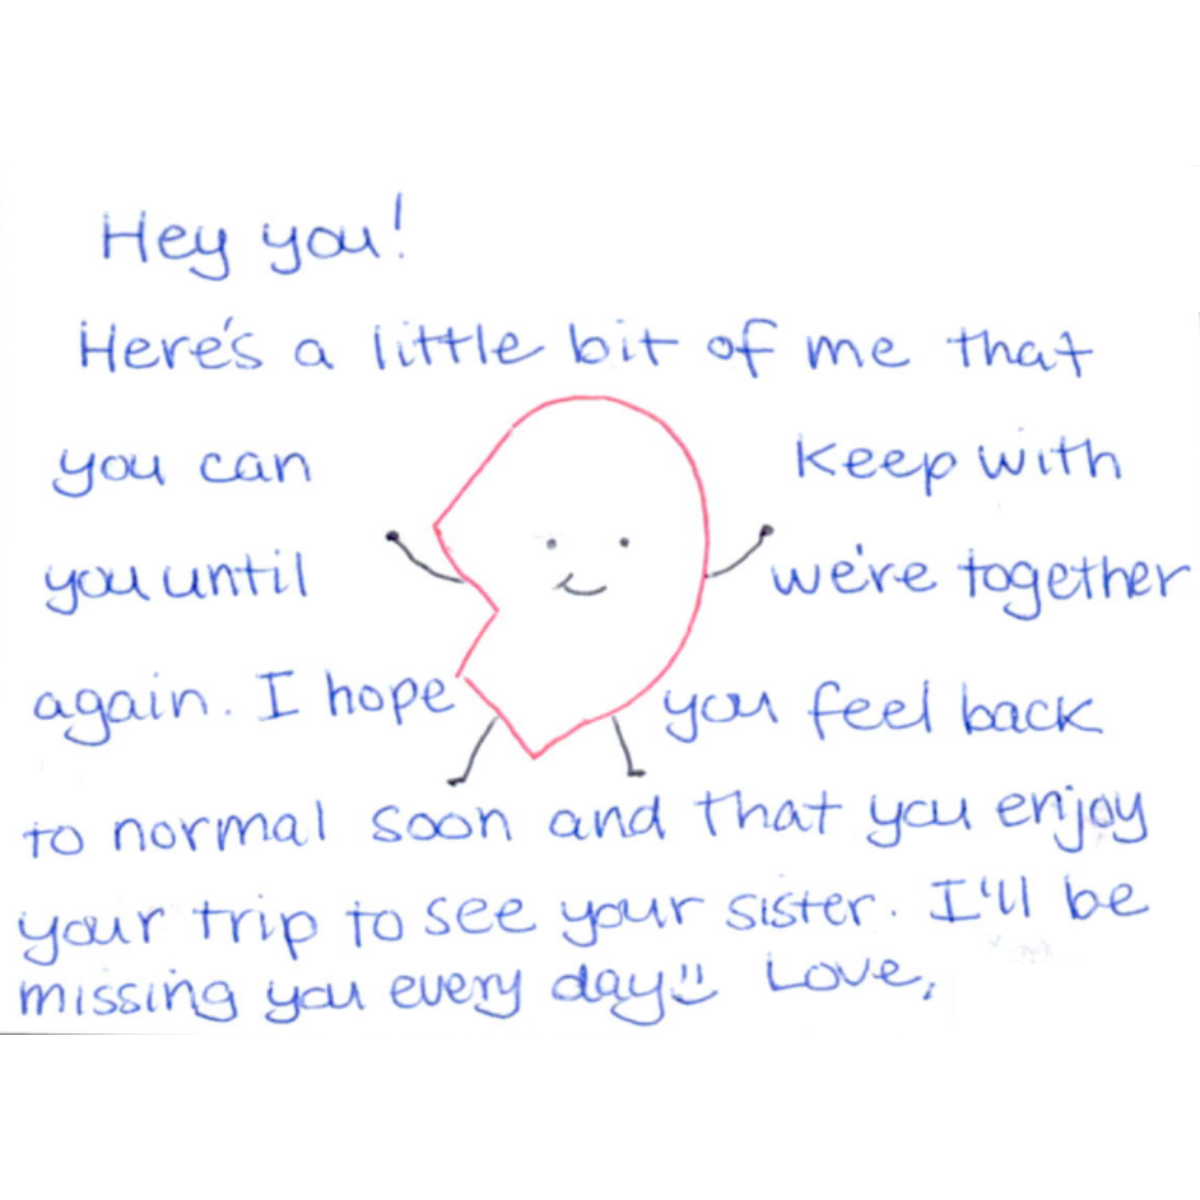 Hey you!
Here's a little bit of me that
you can keep with
you until we're together
again. I hope you feel back
to normal soon and that you enjoy
your trip to see your sister. I'll be
missing you every day :) Love,